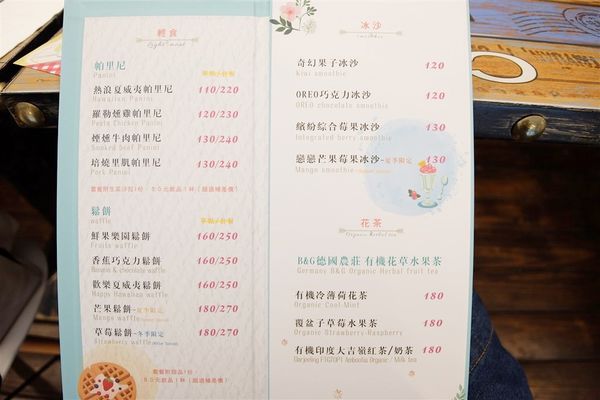 輕食
Light meal
帕里尼
Panini
單點/套餐
熱浪夏威夷帕里尼 110/220
Hawaiian Panini
羅勒燻雞帕里尼 120/230
Pesto Chicken Panini
煙燻牛肉帕里尼 130/240
Smoked beef Panini
培燒里肌帕里尼 130/240
Pork Panini
鬆餅
waffle
單點/套餐
鮮果樂園鬆餅 160/250
Fruits waffle
香蕉巧克力鬆餅 160/250
Banana & chocolate waffle
歡樂夏威夷鬆餅 160/250
Happy Hawaiian waffle
芒果鬆餅-夏季限定 180/270
Mango waffle
草莓鬆餅-冬季限定 180/270
Strawberry waffle
套餐附甜品1份，
80元飲品1杯（超過補差價）
冰沙
smoothie
奇幻果子冰沙 120
Kiwi smoothie
OREO巧克力冰沙 120
OREO chocolate smoothie
繽紛綜合莓果冰沙 130
Integrated berry smoothie
戀戀芒果莓果冰沙-夏季限定 130
Mango smoothie
花茶
Organic Herbal tea
B&G德國農莊 有機花草水果茶
Germany B&G Organic Herbal fruit tea
有機冷薄荷花茶 180
Organic Cool Mint
覆盆子草莓水果茶 180
Organic Strawberry-Raspberry
有機印度大吉嶺紅茶/奶茶 180